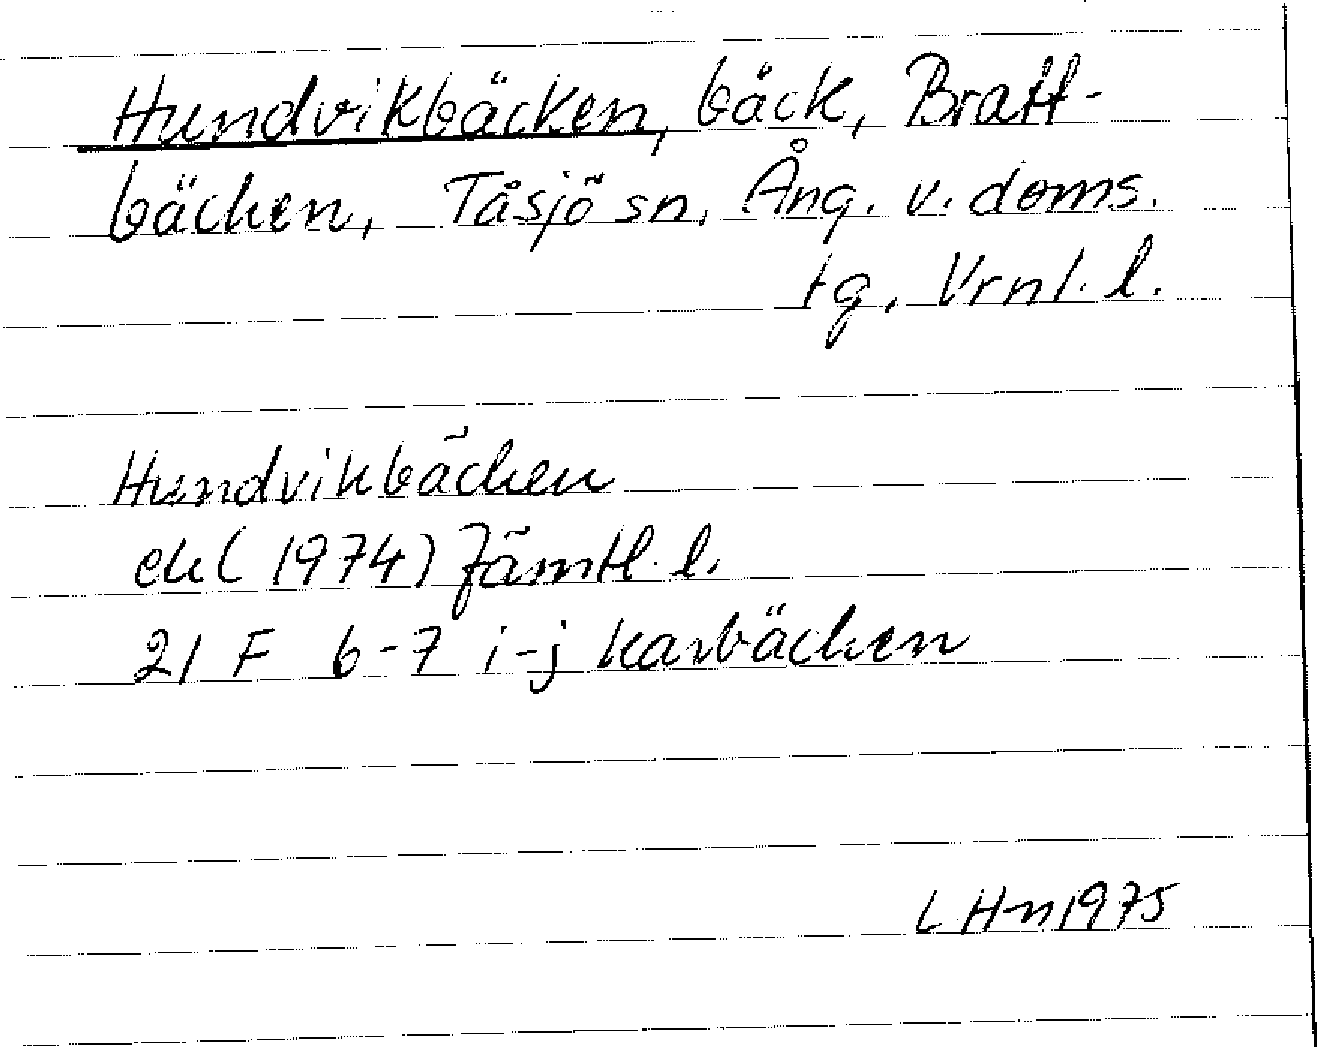 Hundvikbäcken, bäck, Bratt-
bäcken, Tåsjö sn, Ång. v. doms.
tg, Vrnl. l.
Hundvikbäcken
ek (1974) Jämtl. l.
21 F 6-7 i-j Karbäcken
L Hn 1975